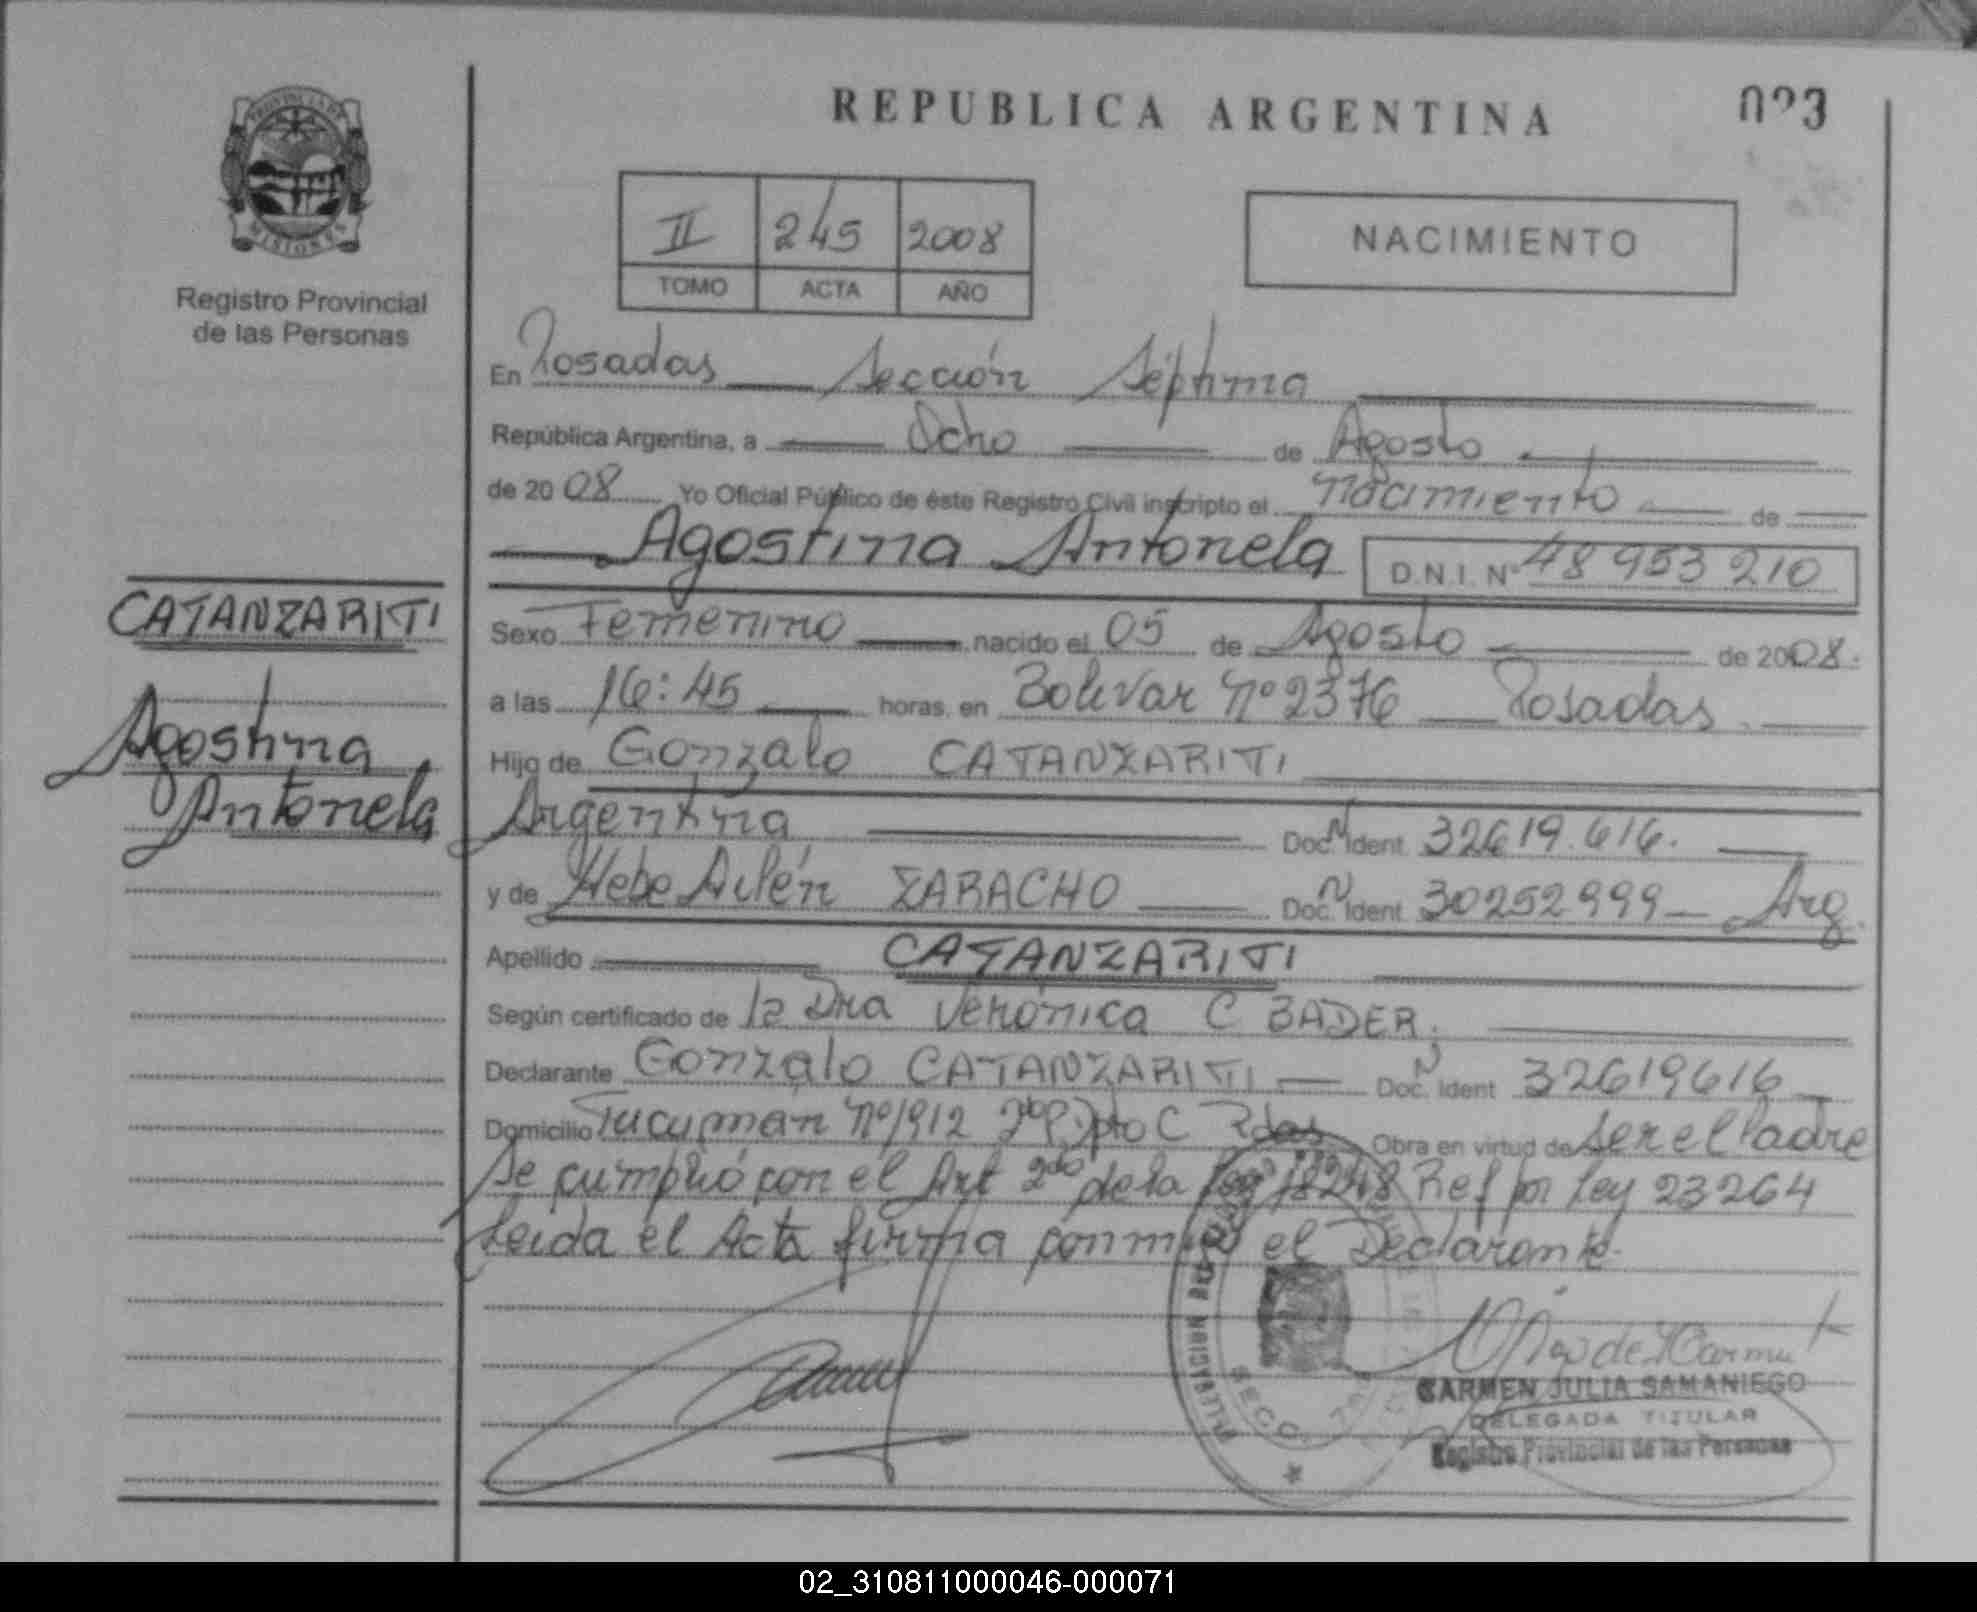 PROVINCIA DE
MISIONES
Registro Provincial
de las Personas
REPUBLICA ARGENTINA
023
II 245 2008
TOMO ACTA AÑO
NACIMIENTO
En Posadas Sección Séptima
República Argentina, a Ocho de Agosto
de 2008 Yo Oficial Público de éste Registro Civil inscripto el Nacimiento de
Agostina Antonela D.N.I. Nº 48 953 210
CATANZARITI
Agostina
Antonela
Sexo Femenino nacido el 05 de Agosto de 2008.
a las 16:45 horas, en Bolivar Nº 2376 Posadas.
Hijo de Gonzalo CATANZARITI
Argentina Doc. Ident. 32619.616.
y de Hebe Ailén ZARACHO Doc. Ident. 30252999 Arg.
Apellido CATANZARITI
Según certificado de la Dra Verónica C BADER.
Declarante Gonzalo CATANZARITI Doc. Ident 32619616
Domicilio Tucuman Nº 1912 2do P. Dpto C Pdas Obra en virtud de ser el Padre
Se cumplió con el Art 2do de la Ley 18248 Ref por Ley 23264
Leida el Acta firma conmigo el Declarante.
SECC. 7
CARMEN JULIA SAMANIEGO
DELEGADA TITULAR
Registro Provincial de las Personas
02_310811000046-000071